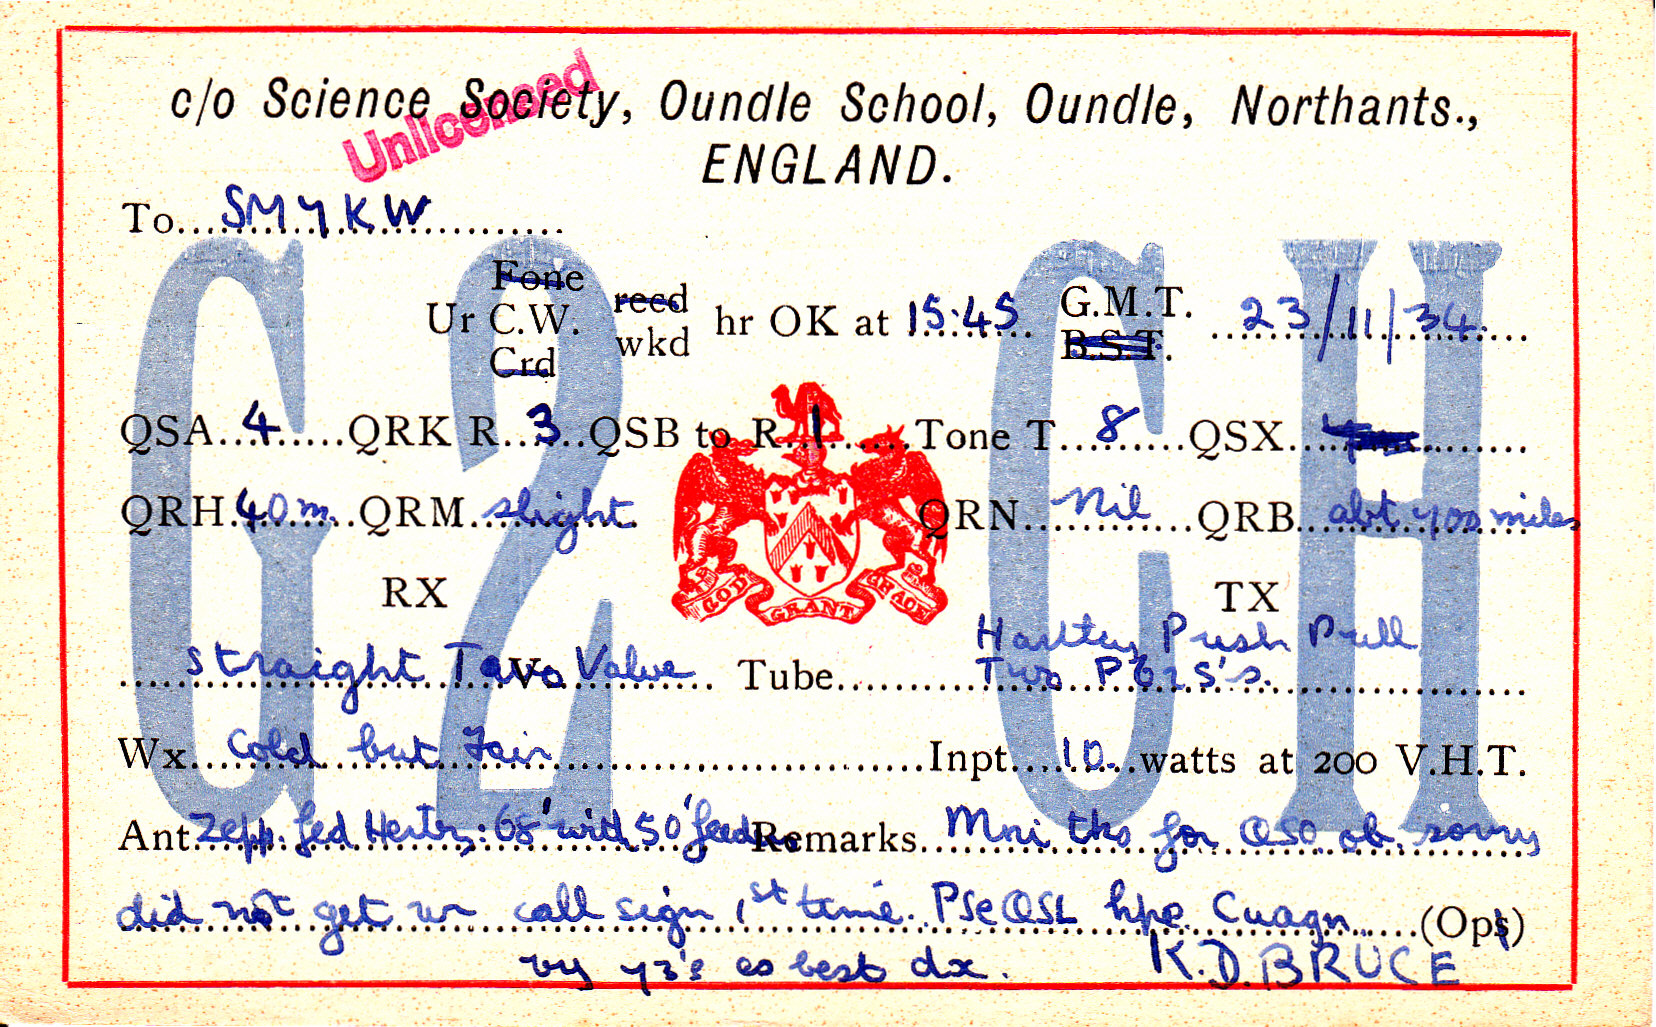 c/o Science Society, Oundle School, Oundle, Northants.,
Unlicensed
ENGLAND.
To SM7KW
G2CH
Fone
Ur C.W. reed hr OK at 15:45 G.M.T. 23/11/34
Crd wkd B.S.T.
QSA 4 QRK R 3 QSB to R 1 Tone T 8 QSX
QRH 40m. QRM slight QRN Nil QRB abt 700 miles
GOD GRANT GRACE
RX TX
Hartley Push Pull
straight Two Valve Tube Two P625's.
Wx cold but Fair Inpt. 10 watts at 200 V.H.T.
Ant Zepp. fed Hertz: 68' with 50' feeders Remarks Mni tks for QSO ob. sorry
did not get ur call sign 1st time. Pse QSL hpe Cuagn (Ops)
vy 73's es best dx. K.D. BRUCE